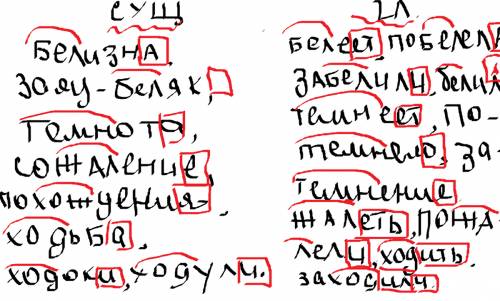 сущ.
Белизна,
заяц-беляк,
Темнота,
сожаление,
похождения,
ходьба,
ходоки, ходули.
гл.
белеет, побелела
забелили, белил
темнеет, по-
темнело, за-
темнение
жалеть, пожа-
лели, ходить.
заходили.